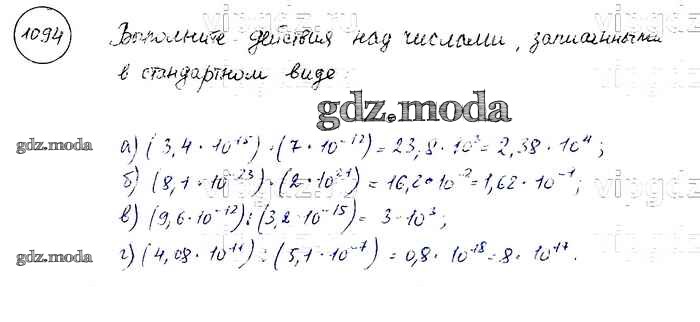 1094 Выполните действия над числами, записанными
в стандартном виде
gdz.moda
gdz.moda а) (3,4 · 10¹⁵) · (7 · 10⁻¹²) = 23,8 · 10³ = 2,38 · 10⁴;
б) (8,1 · 10⁻²³) · (2 · 10²¹) = 16,2 · 10⁻² = 1,62 · 10⁻¹;
в) (9,6 · 10⁻¹²) : (3,2 · 10⁻¹⁵) = 3 · 10³;
gdz.moda г) (4,08 · 10⁻¹¹) : (5,1 · 10⁻⁷) = 0,8 · 10⁻¹⁸ = 8 · 10⁻¹⁷.